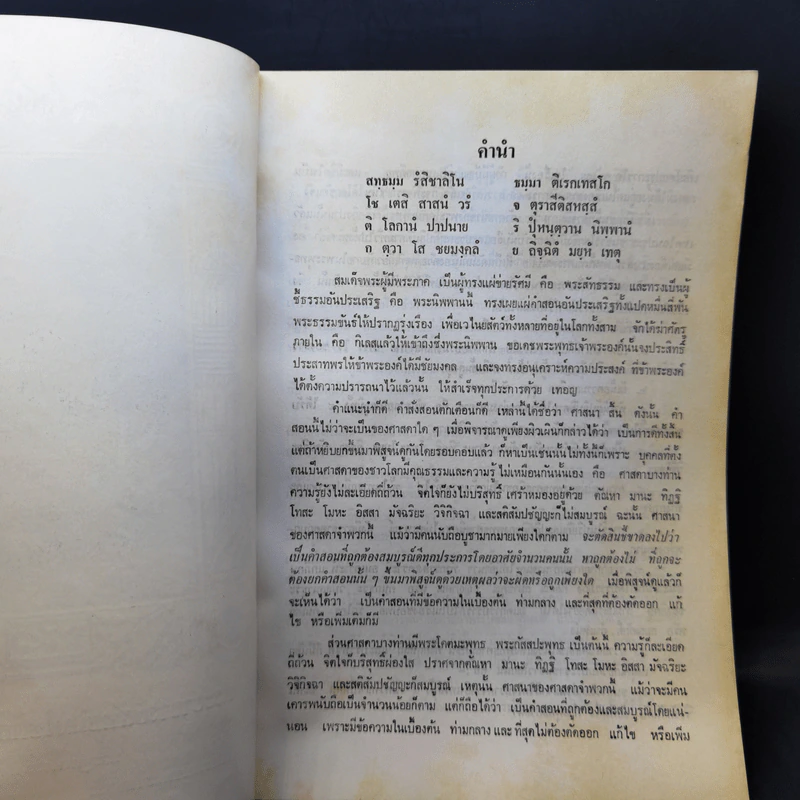 คำนำ
สทฺธมฺม รํสิชาลิโน ธมฺมา ติเรกเทสโก
โช เตสิ สาสนํ วรํ จ ตุราสีติสหสฺสํ
ติ โลกานํ ปาปนาย ริ ปุํหนฺตฺวาน นิพฺพานํ
ก ตฺวา โส ชยมงฺคลํ ย ถิจฺฉิตํ มยฺหํ เทตุ
สมเด็จพระผู้มีพระภาค เป็นผู้ทรงแผ่ข่ายรัศมี คือ พระสัทธรรม และทรงเป็นผู้
ชี้ธรรมอันประเสริฐ คือ พระนิพพานนี้ ทรงเผยแผ่คำสอนอันประเสริฐทั้งแปดหมื่นสี่พัน
พระธรรมขันธ์ให้ปรากฏรุ่งเรือง เพื่อเวไนยสัตว์ทั้งหลายที่อยู่ในโลกทั้งสาม จักได้ฆ่าศัตรู
ภายใน คือ กิเลสแล้วให้เข้าถึงซึ่งพระนิพพาน ขอเดชพระพุทธเจ้าพระองค์นั้นจงประสิทธิ์
ประสาทพรให้ข้าพระองค์ได้มีชัยมงคล และจงทรงอนุเคราะห์ความประสงค์ ที่ข้าพระองค์
ได้ตั้งความปรารถนาไว้แล้วนั้น ให้สำเร็จทุกประการด้วย เทอญ
คำแนะนำก็ดี คำสั่งสอนตักเตือนก็ดี เหล่านี้ได้ชื่อว่า ศาสนา สิ้น ดังนั้น คำ
สอนนี้ไม่ว่าจะเป็นของศาสดาใด ๆ เมื่อพิจารณาดูเพียงผิวเผินก็กล่าวได้ว่า เป็นการดีทั้งสิ้น
แต่ถ้าหยิบยกขึ้นมาพิสูจน์ดูกันโดยรอบคอบแล้ว ก็หาเป็นเช่นนั้นไม่ทั้งนี้ก็เพราะ บุคคลที่ตั้ง
ตนเป็นศาสดาของชาวโลกมีคุณธรรมและความรู้ ไม่เหมือนกันนั้นเอง คือ ศาสดาบางท่าน
ความรู้ยังไม่ละเอียดถี่ถ้วน จิตใจก็ยังไม่บริสุทธิ์ เศร้าหมองอยู่ด้วย ตัณหา มานะ ทิฏฐิ
โทสะ โมหะ อิสสา มัจฉริยะ วิจิกิจฉา และสติสัมปชัญญะก็ไม่สมบูรณ์ ฉะนั้น ศาสนา
ของศาสดาจำพวกนี้ แม้ว่ามีคนนับถือบูชามากมายเพียงใดก็ตาม จะตัดสินชี้ขาดลงไปว่า
เป็นคำสอนที่ถูกต้องสมบูรณ์ดีทุกประการโดยอาศัยจำนวนคนนั้น หาถูกต้องไม่ ที่ถูกจะ
ต้องยกคำสอนนั้น ๆ ขึ้นมาพิสูจน์ดูด้วยเหตุผลว่าจะผิดหรือถูกเพียงใด เมื่อพิสูจน์ดูแล้วก็
จะเห็นได้ว่า เป็นคำสอนที่มีข้อความในเบื้องต้น ท่ามกลาง และที่สุดที่ต้องตัดออก แก้
ไข หรือเพิ่มเติมก็มี
ส่วนศาสดาบางท่านมีพระโคดมะพุทธ พระกัสสปะพุทธ เป็นต้นนั้น ความรู้ก็ละเอียด
ถี่ถ้วน จิตใจก็บริสุทธิ์ผ่องใส ปราศจากตัณหา มานะ ทิฏฐิ โทสะ โมหะ อิสสา มัจฉริยะ
วิจิกิจฉา และสติสัมปชัญญะก็สมบูรณ์ เหตุนั้น ศาสนาของศาสดาจำพวกนี้ แม้ว่าจะมีคน
เคารพนับถือเป็นจำนวนน้อยก็ตาม แต่ก็ถือได้ว่า เป็นคำสอนที่ถูกต้องและสมบูรณ์โดยแน่-
นอน เพราะมีข้อความในเบื้องต้น ท่ามกลาง และ ที่สุดไม่ต้องตัดออก แก้ไข หรือเพิ่ม